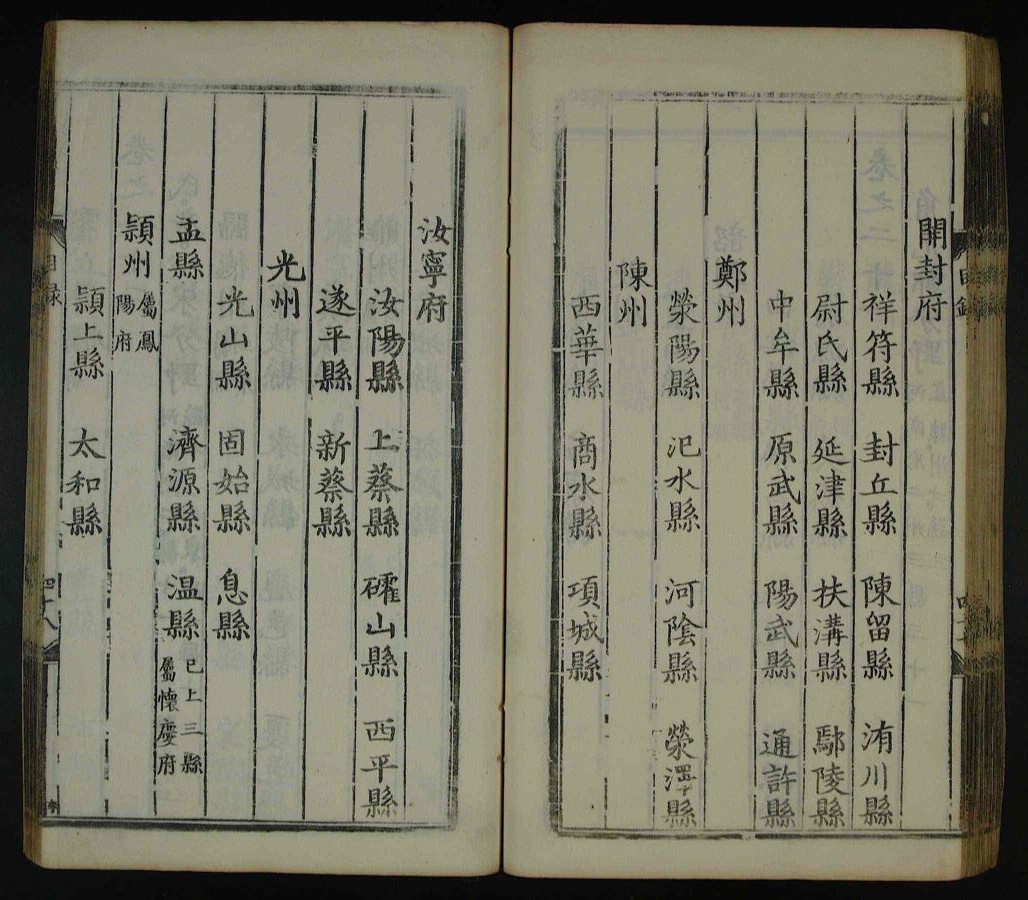 開封府
祥符縣 封丘縣 陳留縣 洧川縣
尉氏縣 延津縣 扶溝縣 鄢陵縣
中牟縣 原武縣 陽武縣 通許縣
鄭州
滎陽縣 汜水縣 河陰縣 滎澤縣
陳州
西華縣 商水縣 項城縣
汝寧府
汝陽縣 上蔡縣 確山縣 西平縣
遂平縣 新蔡縣
光州
光山縣 固始縣 息縣
孟縣 濟源縣 温縣 已上三縣屬懷慶府
頴州 屬鳳陽府
頴上縣 太和縣
目録 四十八